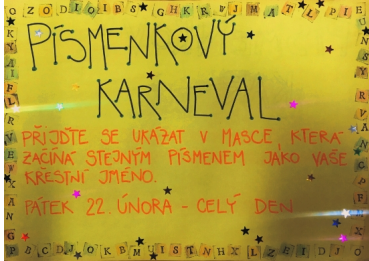 PÍSMENKOVÝ
KARNEVAL
PŘIJĎTE SE UKÁZAT V MASCE, KTERÁ
ZAČÍNÁ STEJNÝM PÍSMENEM JAKO VAŠE
KŘESTNÍ JMÉNO.
PÁTEK 22. ÚNORA - CELÝ DEN